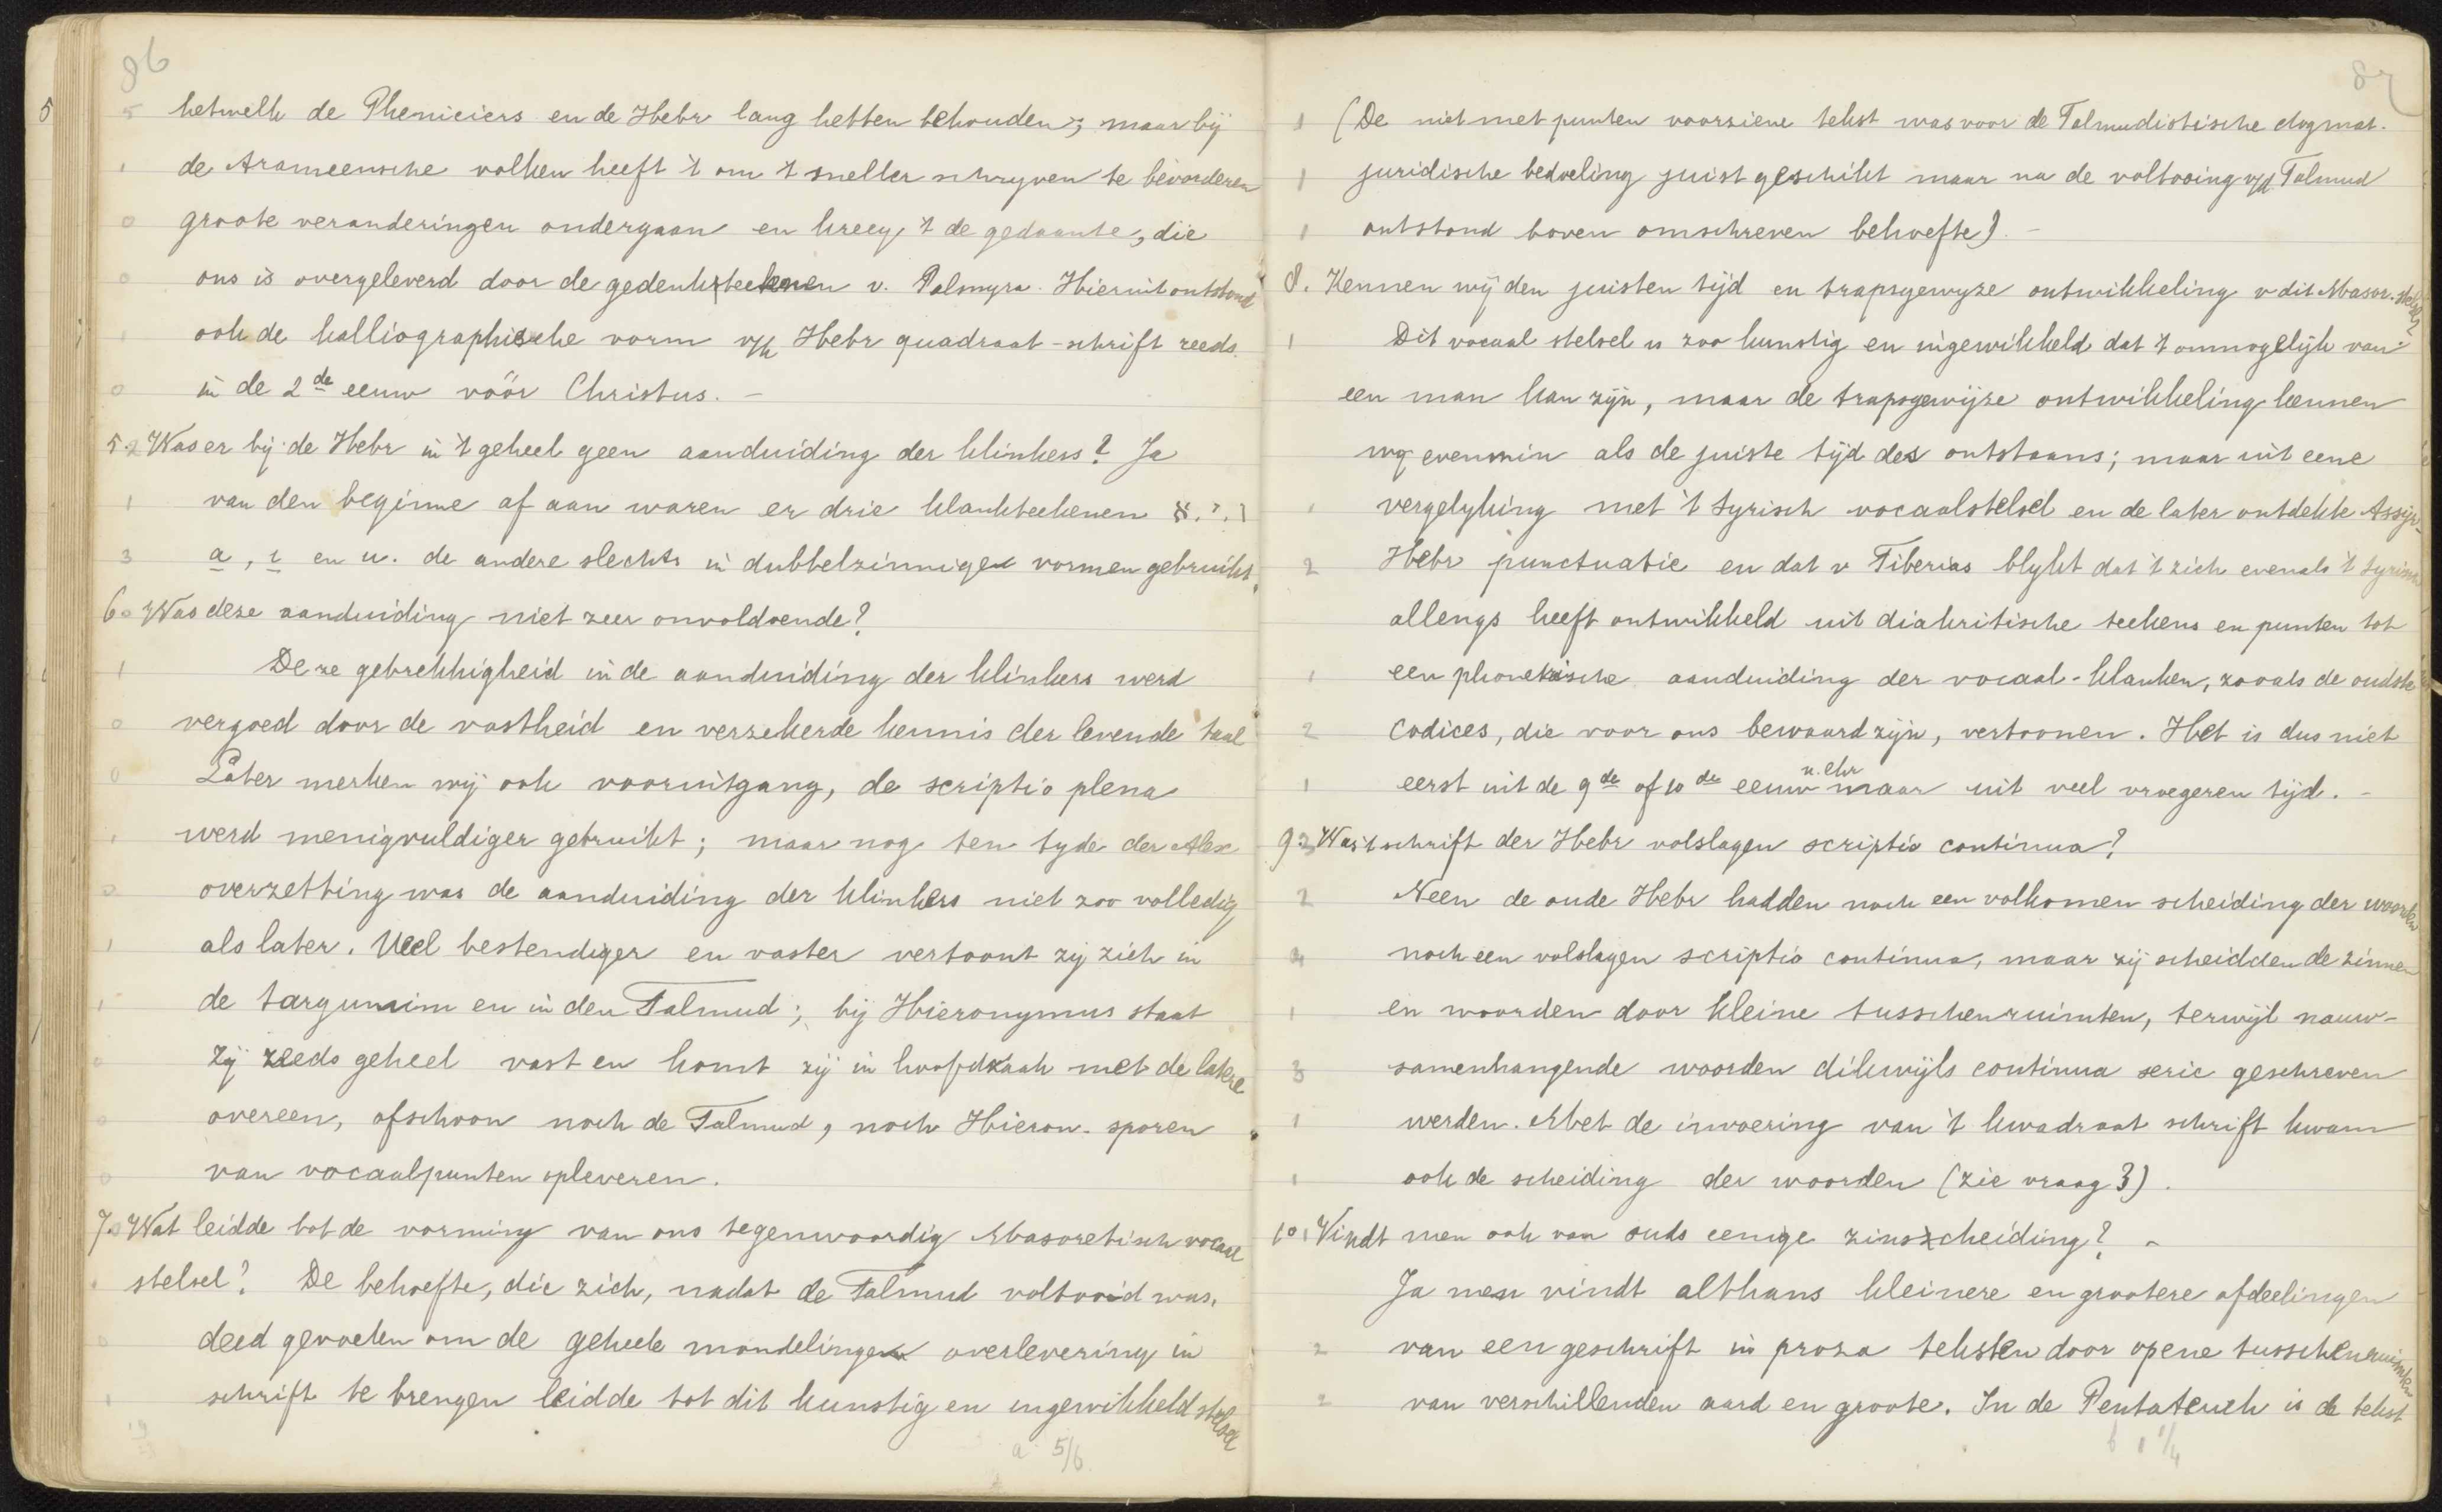 86
hetwelk de Pheniciers en de Hebr lang hebben behouden; maar bij
de Arameensche volken heeft 't om 't sneller schryven te bevorderen
groote veranderingen ondergaan en kreeg 't de gedaante, die
ons is overgeleverd door de gedenkteekenen v. Palmyra. Hieruit ontstond
ook de kalliographische vorm v/h Hebr quadraat-schrift reeds
in de 2de eeuw vóór Christus. –
5. Was er bij de Hebr in 't geheel geen aanduiding der klinkers? Ja
van den beginne af aan waren er drie klankteekenen א. י. ו
a, i en u. de andere slechts in dubbelzinnige vormen gebruikt.
6. Was deze aanduiding niet zeer onvoldoende?
Deze gebrekkigheid in de aanduiding der klinkers werd
vergoed door de vastheid en verzekerde kennis der levende taal
Later merken wij ook vooruitgang, de scriptio plena
werd menigvuldiger gebruikt; maar nog ten tyde der Alex
overzetting was de aanduiding der klinkers niet zoo volledig
als later. Veel bestendiger en vaster vertoont zij zich in
de targumim en in den Talmud; bij Hieronymus staat
zij reeds geheel vast en komt zij in hoofdzaak met de latere
overeen, ofschoon noch de Talmud, noch Hieron. sporen
van vocaalpunten opleveren.
7. Wat leidde tot de vorming van ons tegenwoordig Masoretisch vocaal
stelsel? De behoefte, die zich, nadat de Talmud voltooid was,
deed gevoelen om de geheele mondelinge overlevering in
schrift te brengen leidde tot dit kunstig en ingewikkeld stelsel
a 5/6
87
(De niet met punten voorziene tekst was voor de Talmudistische dogmat.
juridische bedoeling juist geschikt maar na de voltooing v/d Talmud
ontstond boven omschreven behoefte). –
8. Kennen wij den juisten tijd en trapsgewyze ontwikkeling v dit Masor. stelsel?
Dit vocaal stelsel is zoo kunstig en ingewikkeld dat 't onmogelijk van
een man kan zijn, maar de trapsgewijze ontwikkeling kennen
wij evenmin als de juiste tijd des ontstaans; maar uit eene
vergelyking met 't Syrisch vocaalstelsel en de later ontdekte Assyr.
Hebr punctuatie en dat v Tiberias blykt dat 't zich evenals 't Syrische
allengs heeft ontwikkeld uit diakritische teekens en punten tot
een phonetische aanduiding der vocaal-klanken, zooals de oudste
codices, die voor ons bewaard zijn, vertoonen. Het is dus niet
eerst uit de 9de of 10de eeuw n. Chr maar uit veel vroegeren tijd. –
9. Was 't schrift der Hebr volslagen scriptio continua?
Neen de oude Hebr hadden noch een volkomen scheiding der woorden
noch een volslagen scriptio continua, maar zij scheidden de zinnen
en woorden door kleine tusschenruimten, terwijl nauw-
samenhangende woorden dikwijls continua serie geschreven
werden. Met de invoering van 't kwadraat schrift kwam
ook de scheiding der woorden (zie vraag 3).
10. Vindt men ook van ouds eenige zinscheiding? –
Ja men vindt althans kleinere en grootere afdeelingen
van een geschrift in proza teksten door opene tusschenruimten
van verschillenden aard en groote. In de Pentateuch is de tekst
b 1 1/4